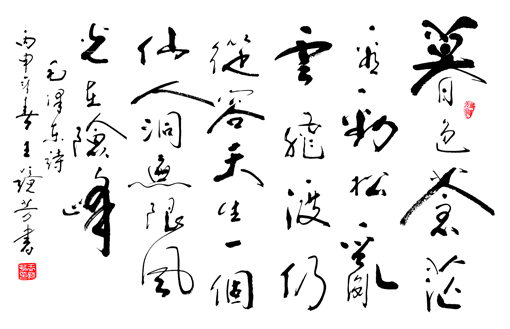 暮色蒼茫
看勁松亂
雲飛渡仍
從容天生一個
仙人洞無限風
光在險峰
毛澤東詩
丙申年春王鏡芳書